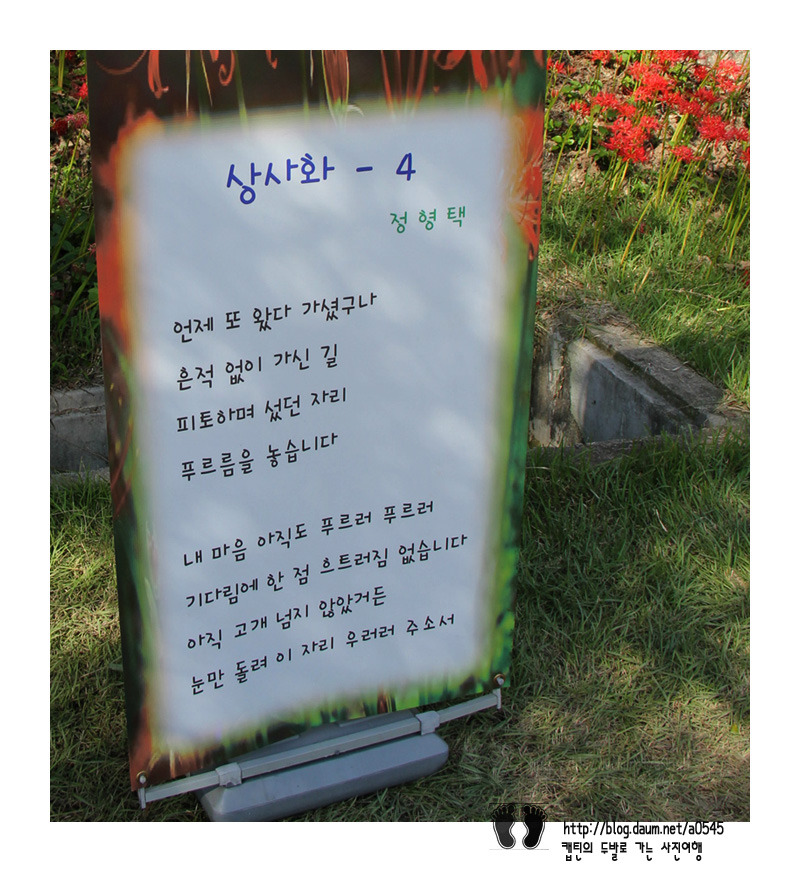 상사화 - 4
정형택
언제 또 왔다 가셨구나
흔적 없이 가신 길
피토하며 섰던 자리
푸르름을 놓습니다
내 마음 아직도 푸르러 푸르러
기다림에 한 점 흐트러짐 없습니다
아직 고개 넘지 않았거든
눈만 돌려 이 자리 우러러 주소서
http://blog.daum.net/a0545
캡틴의 두발로 가는 사진여행